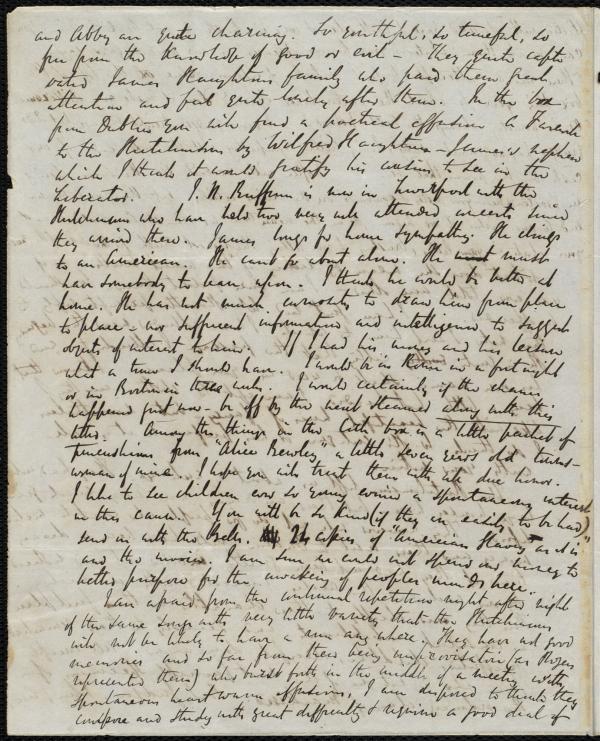 and Abby are quite charming. So youthful, so tuneful, so
free from the knowledge of good or evil - They quite capti
vated James Haughton's family who paid them great
attention and feel quite lonely after them. In the box
from Dublin you will find a poetical effusion a Farewell
to the Hutchinsons by Wilfred Haughton - James's nephew
which I think it would gratify his cousins to see in the
Liberator. J. N. Buffum is now in Liverpool with the
Hutchinsons who have held two very well attended concerts since
they arrived there. James longs for home sympathy. He clings
to an American. He can't go about alone. He must
have somebody to lean upon. I think he would be better at
home. He has not much curiosity to draw him from place
to place - nor sufficient information and intelligence to suggest
objects of interest to him. If I had his money and his leisure
what a time I should have. I would be in Rome in a fortnight
or in Boston in three weeks. I would certainly if the chance
happened just now - be off by the next steamer along with this
letter. Among the things in the Cork box is a little packet of
pincushions from "Alice Bewley," a little seven years old towns-
woman of mine. I hope you will treat them with all due honor.
I like to see children ever so young evince a spontaneous interest
in this cause. If you will be so kind (if they are easily to be had)
send us with the Bells. 24 copies of "American Slavery as it is"
and the invoice. I am sure we could not spend our money to
better purpose for the awaking of people's minds here.
I am afraid from the continual repetition night after night
of the same songs with very little variety that the Hutchinsons
will not be likely to have a run any where. They have not good
memories and so far from their being improvisatori (as Rogers
represented them) who burst forth in the middle of a meeting with
spontaneous heartwarm effusions, I am disposed to think they
compose and study with great difficulty & require a good deal of